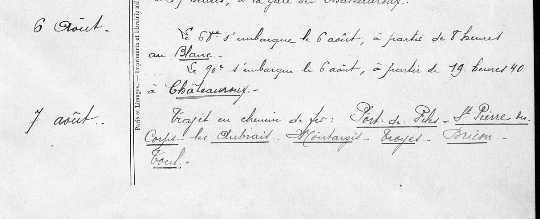 à la gare de Châteauroux.
6 Août.
Le 68e s'embarque le 6 août, à partir de 8 heures
au Blanc.
Le 90e s'embarque le 6 août, à partir de 19 heures 40
à Châteauroux.
7 août.
Trajet en chemin de fer : Port-de-Piles - St Pierre des
Corps - les Aubrais - Montargis - Troyes - Bricon -
Toul.